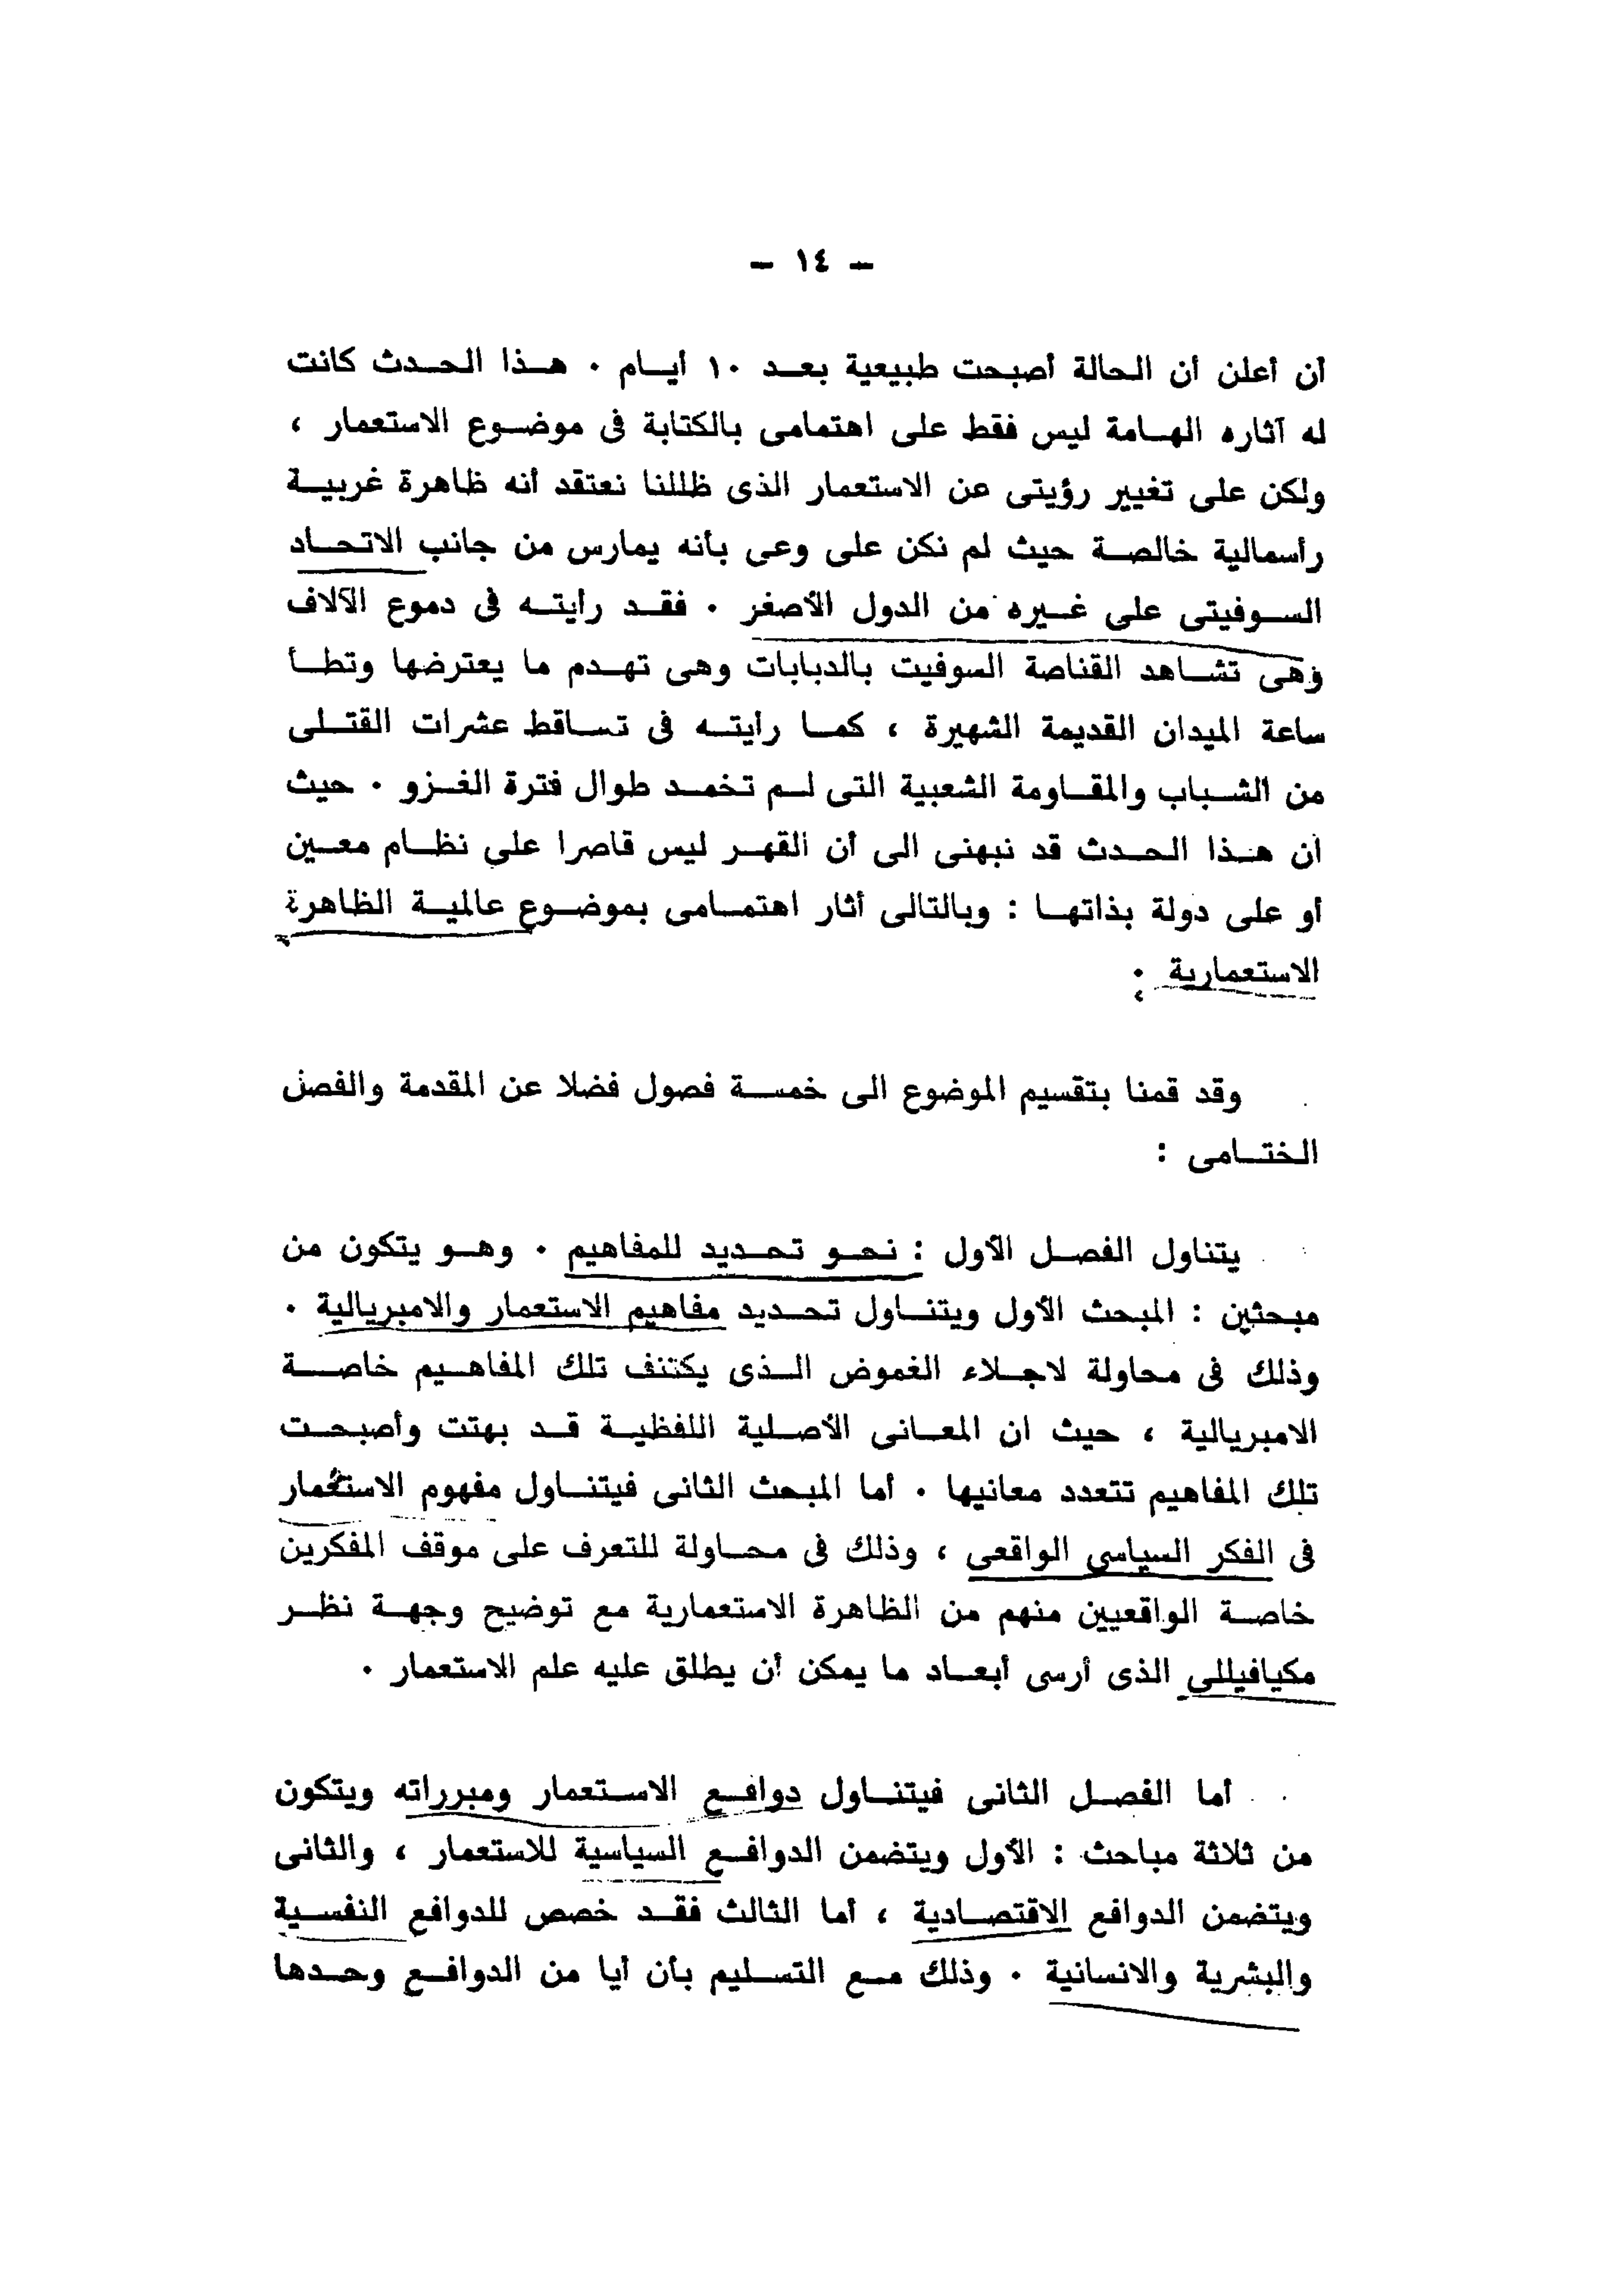 – ١٤ –
أن أعلن أن الحالة أصبحت طبيعية بعد ١٠ أيام . هذا الحدث كانت
له آثاره الهامة ليس فقط على اهتمامى بالكتابة فى موضوع الاستعمار ،
ولكن على تغيير رؤيتى عن الاستعمار الذى ظللنا نعتقد أنه ظاهرة غربية
رأسمالية خالصة حيث لم نكن على وعى بأنه يمارس من جانب الاتحاد
السوفيتى على غيره من الدول الأصغر . فقد رأيته فى دموع الآلاف
وهى تشاهد القناصة السوفيت بالدبابات وهى تهدم ما يعترضها وتطأ
ساعة الميدان القديمة الشهيرة ، كما رأيته فى تساقط عشرات القتلى
من الشباب والمقاومة الشعبية التى لم تخمد طوال فترة الغزو . حيث
أن هذا الحدث قد نبهنى الى أن القهر ليس قاصرا على نظام معين
أو على دولة بذاتها : وبالتالى أثار اهتمامى بموضوع عالمية الظاهرة
الاستعمارية .
وقد قمنا بتقسيم الموضوع الى خمسة فصول فضلا عن المقدمة والفصل
الختامى :
يتناول الفصل الأول : نحو تحديد للمفاهيم . وهو يتكون من
مبحثين : المبحث الأول ويتناول تحديد مفاهيم الاستعمار والامبريالية .
وذلك فى محاولة لاجلاء الغموض الذى يكتنف تلك المفاهيم خاصة
الامبريالية ، حيث ان المعانى الأصلية اللفظية قد بهتت وأصبحت
تلك المفاهيم تتعدد معانيها . أما المبحث الثانى فيتناول مفهوم الاستعمار
فى الفكر السياسى الواقعى ، وذلك فى محاولة للتعرف على موقف المفكرين
خاصة الواقعيين منهم من الظاهرة الاستعمارية مع توضيح وجهة نظر
مكيافيللى الذى أرسى أبعاد ما يمكن أن يطلق عليه علم الاستعمار .
أما الفصل الثانى فيتناول دوافع الاستعمار ومبرراته ويتكون
من ثلاثة مباحث : الأول ويتضمن الدوافع السياسية للاستعمار ، والثانى
ويتضمن الدوافع الاقتصادية ، أما الثالث فقد خصص للدوافع النفسية
والبشرية والانسانية . وذلك مع التسليم بأن أيا من الدوافع وحدها